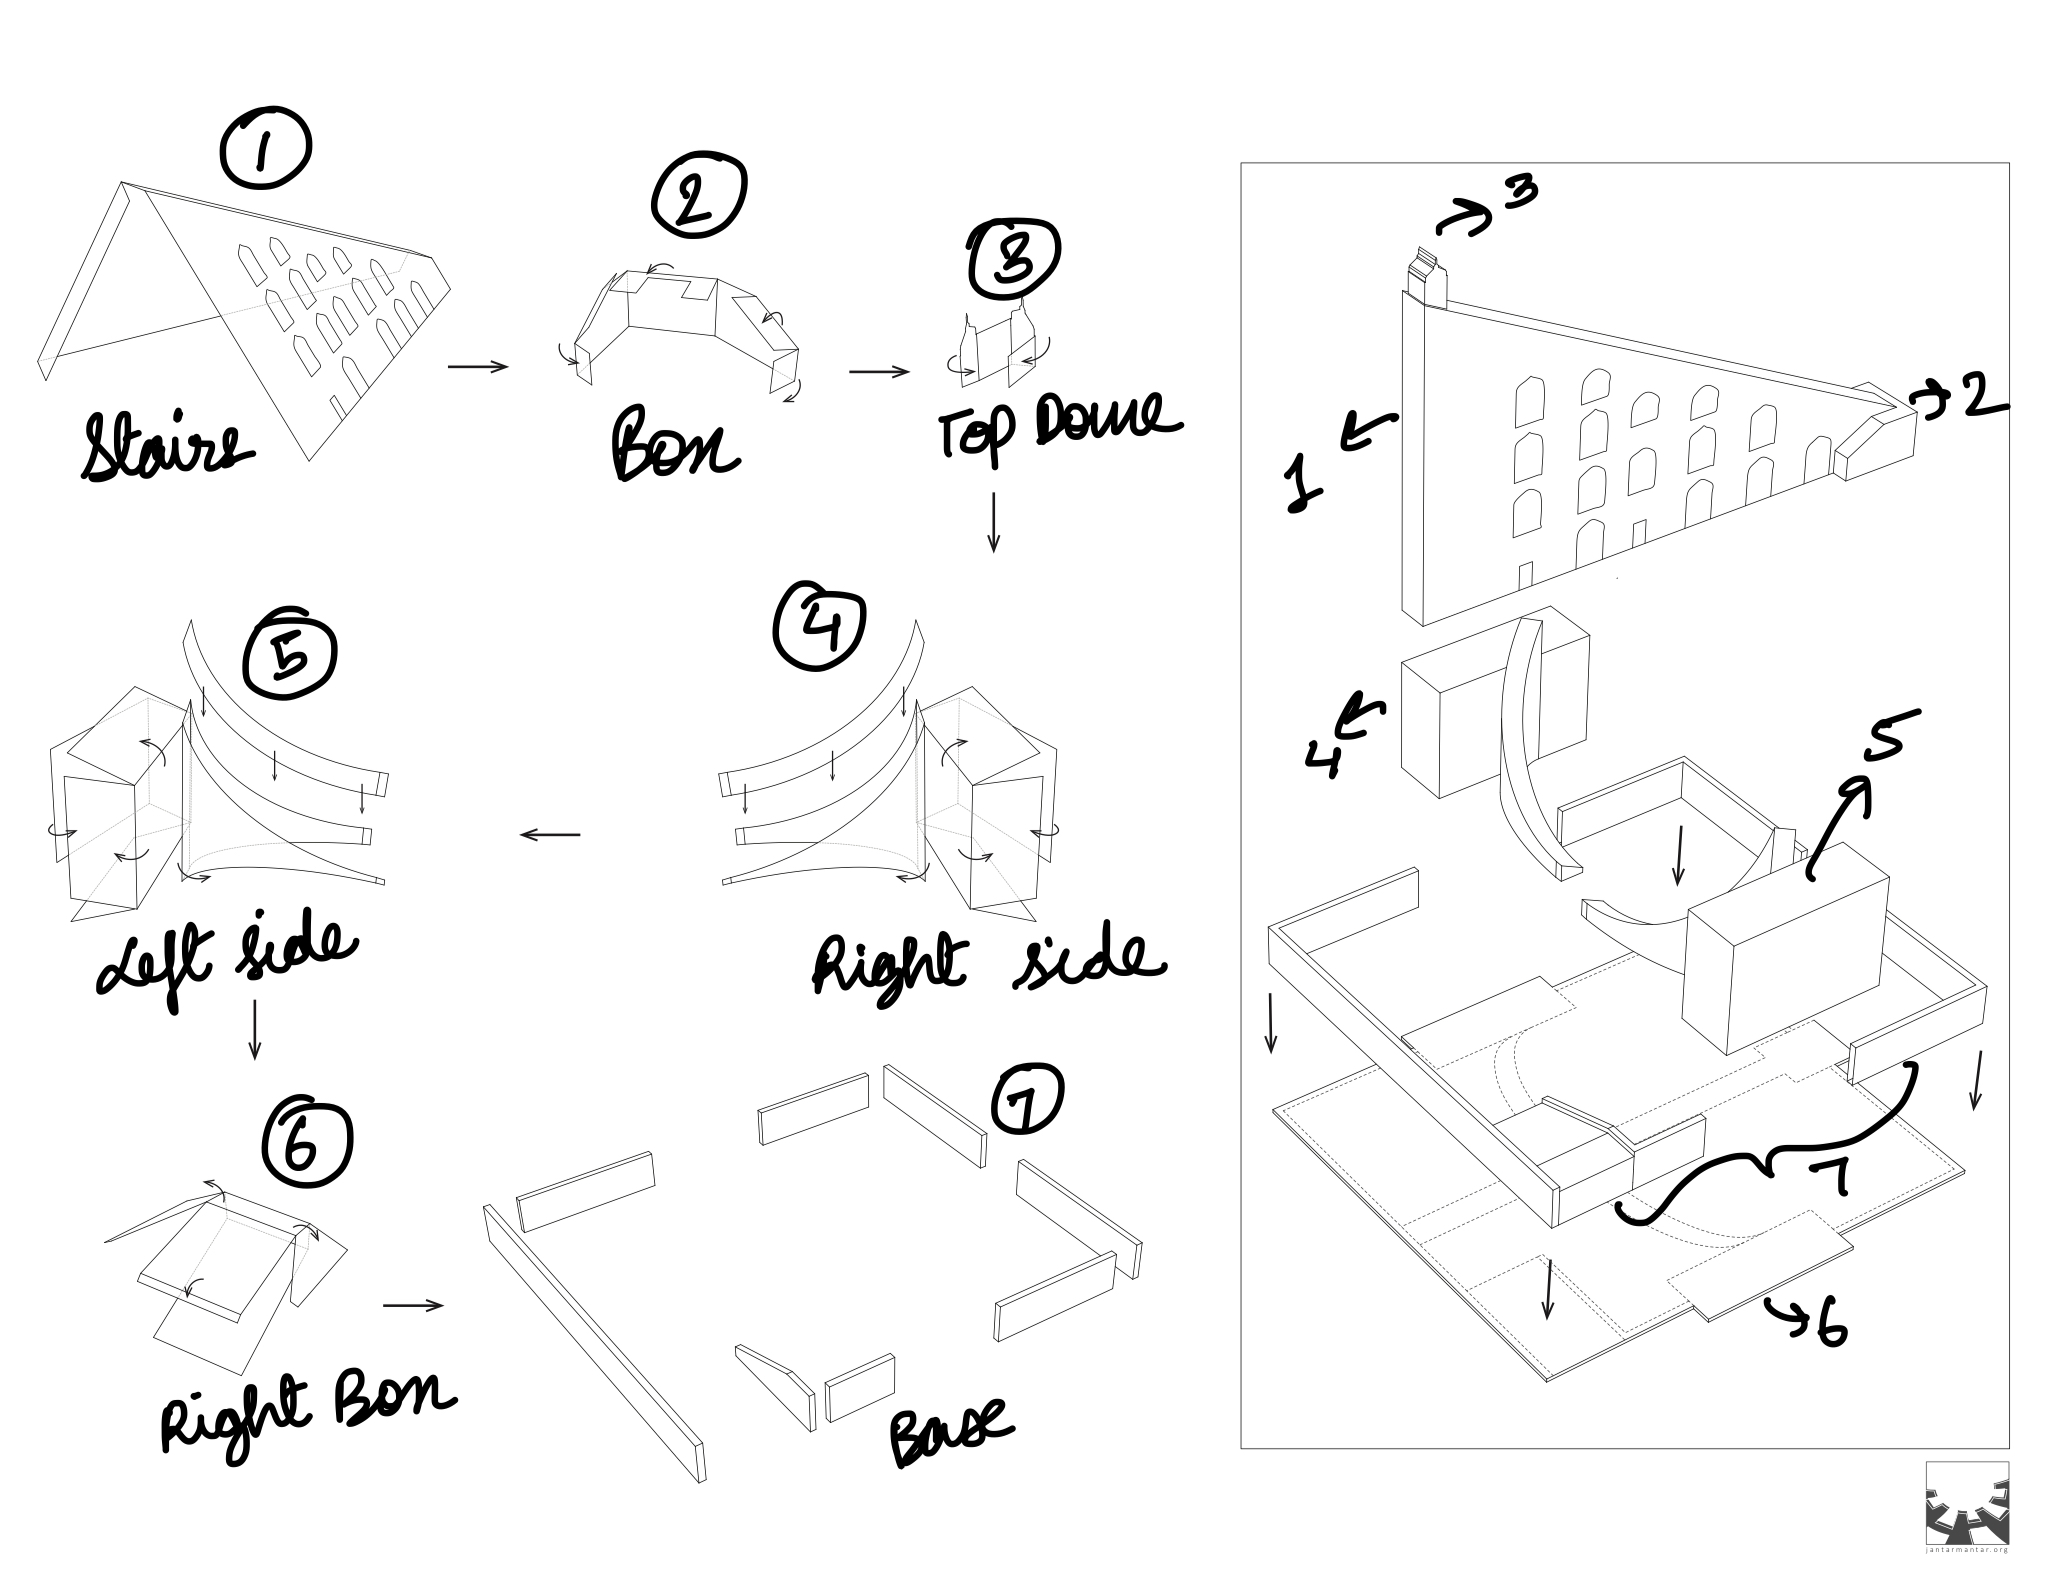 1
Stairs
2
Box
3
Top Dome
5
Left side
4
Right side
6
Right Box
7
Base
3
2
1
4
5
7
6
jantarmantar.org